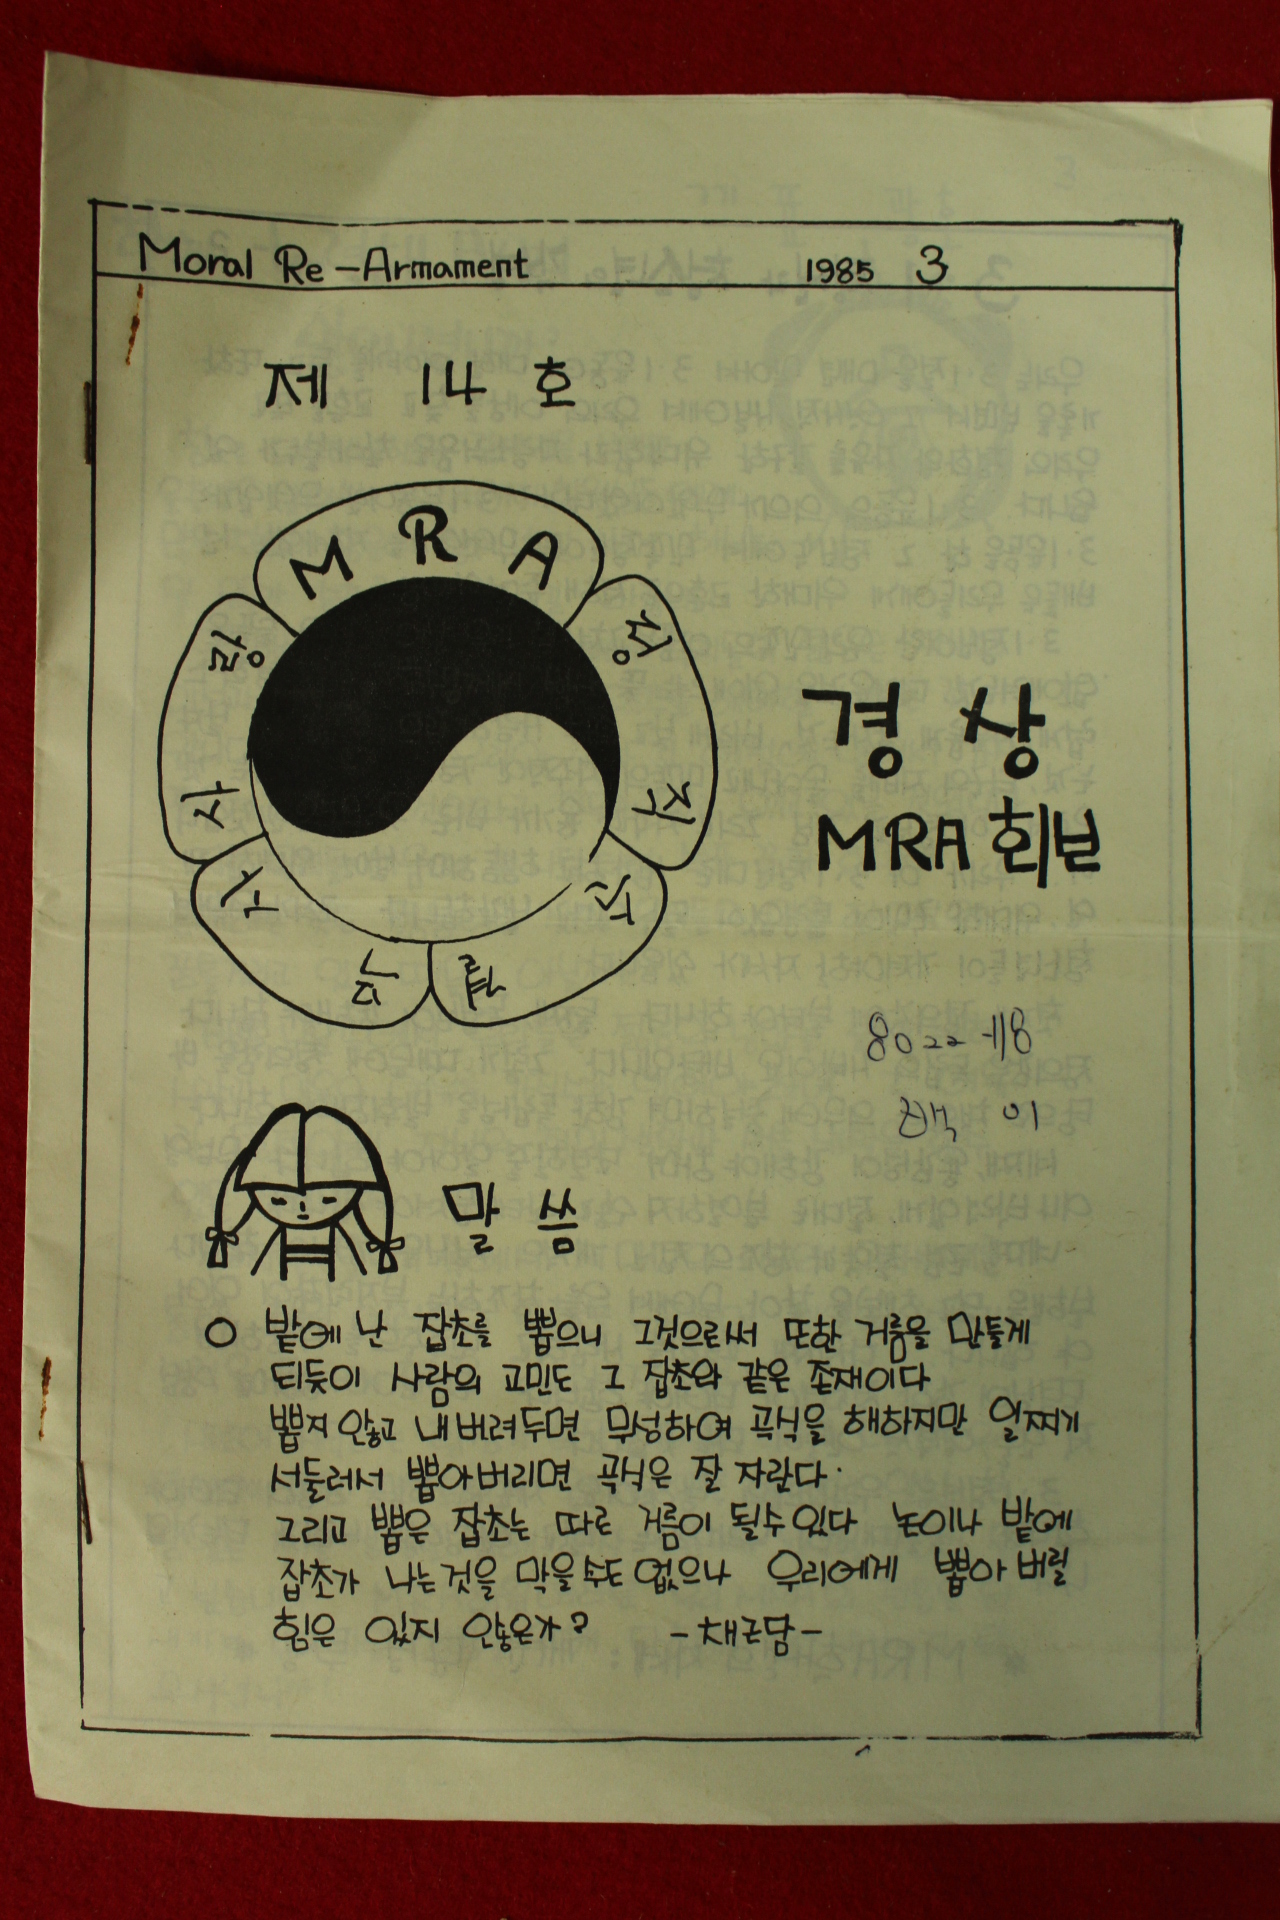 Moral Re-Armament 1985 3
제 14 호
MRA
정직
순결
무사
사랑
경상
MRA 회보
말씀
○ 밭에 난 잡초를 뽑으니 그것으로써 또한 거름을 만들게
되듯이 사람의 고민도 그 잡초와 같은 존재이다
뽑지 않고 내버려두면 무성하여 곡식을 해하지만 일찌기
서둘러서 뽑아버리면 곡식은 잘 자란다.
그리고 뽑은 잡초는 따로 거름이 될수있다 논이나 밭에
잡초가 나는것을 막을수도 없으나 우리에게 뽑아 버릴
힘은 있지 않은가?
-채근담-